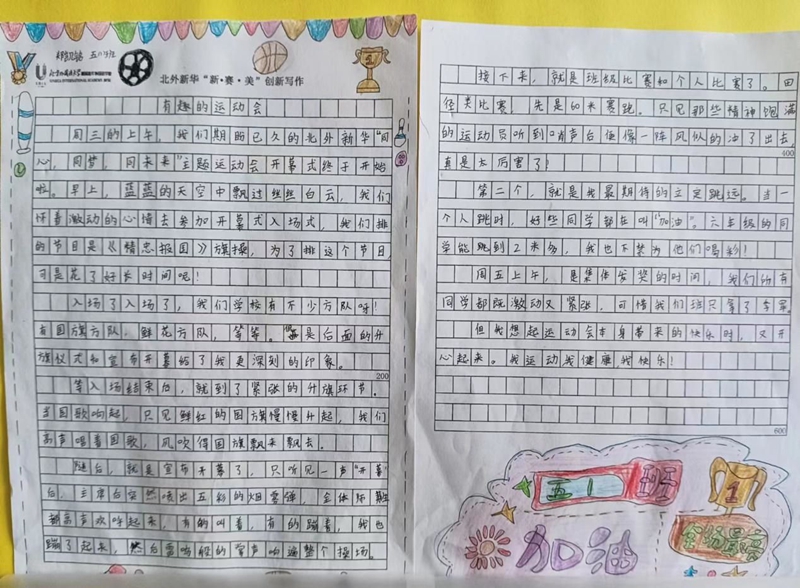 五(1)班
北外新华“新·赛·美”创新写作
有趣的运动会
周三的上午，我们期盼已久的北外新华“同
心，同梦，向未来”主题运动会开幕式终于开始
啦。早上，蓝蓝的天空中飘过丝丝白云，我们
怀着激动的心情去参加开幕式入场式，我们排
的节目是《精忠报国》旗操，为了排这个节目，
可是花了好长时间呢！
入场了入场了，我们学校有不少方队呀！
有国旗方队，鲜花方队，等等。但是后面的升
旗仪式和宣布开幕给了我更深刻的印象。
200
等入场结束后，就到了紧张的升旗环节。
当国歌响起，只见鲜红的国旗慢慢升起，我们
高声唱着国歌，风吹得国旗飘来飘去。
随后，就是宣布开幕了，只听见一声“开幕”
后，主席台突然喷出五彩的烟雾弹，全体师生
都高声欢呼起来，有的叫着，有的蹦着，我也
蹦了起来，然后雷鸣般的掌声响遍整个操场。
接下来，就是班级比赛和个人比赛了。田
径类比赛，先是60米赛跑。只见那些精神饱满
的运动员听到哨声后便像一阵风似的冲了出去，
400
真是太厉害了！
第二个，就是我最期待的立定跳远。当一
个人跳时，好些同学都在叫“加油”。六年级的同
学能跳到2米多，我也不禁为他们喝彩！
周五上午，是集体发奖的时间，我们所有
同学都既激动又紧张，可惜我们班只拿了季军。
但我想起运动会本身带来的快乐时，又开
心起来。我运动我健康我快乐！
600
五1班
1
加油